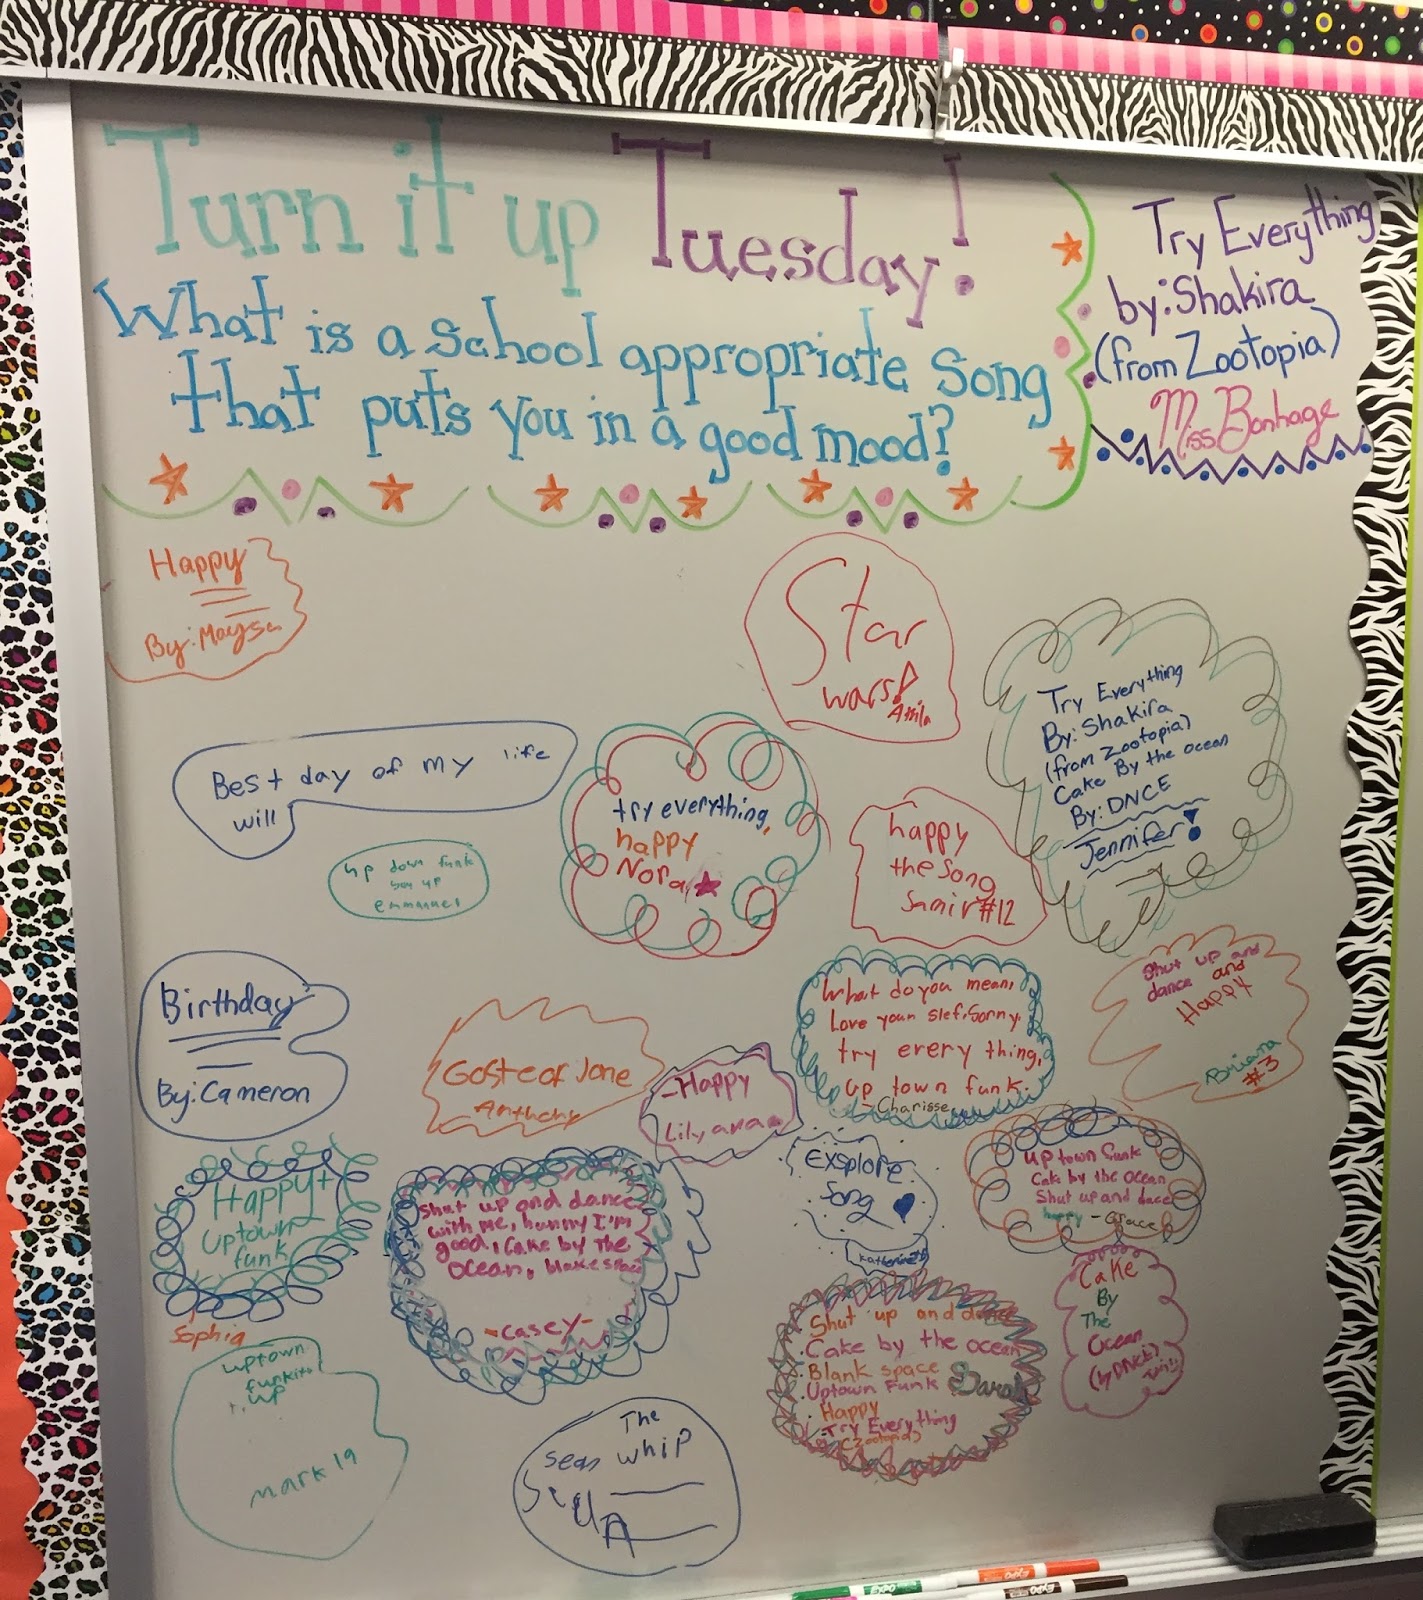 Turn it up Tuesday!
What is a school appropriate song
that puts you in a good mood?
Try Everything
by: Shakira
(from Zootopia)
Miss Bonhage
Happy
By: Maysa
Star
wars!
Attila
Try Everything
By: Shakira
(from Zootopia)
Cake By the ocean
By: DNCE
Jennifer!
Best day of my life
will
try everything,
happy
Nora
happy
the song
Samir #12
up down funk
emmanuel
Birthday
By: Cameron
Goste of Jone
Anthony
Happy
Lilyana
What do you mean,
Love youn slef, Sorry,
try every thing,
up town funk.
- Charisse
Shut up and
dance and
Happy
Briana
#3
Happy+
Uptown
funk
Sophia
shut up and dance
with me, hunny I'm
good, Cake by the
Ocean, blake space
-Casey-
Exsplore
Song
Katherine
Up town funk
Cake by the Ocean
Shut up and dace
happy - Grace
Shut up and dance
Cake by the ocean
Blank space
Uptown Funk
Sarah
Happy
Try Everything
(Zootopia)
Cake
By
The
Ocean
(by DNCE)
uptown
funk it
up
mark 19
The
sean whip
EXPO
EXPO
EXPO